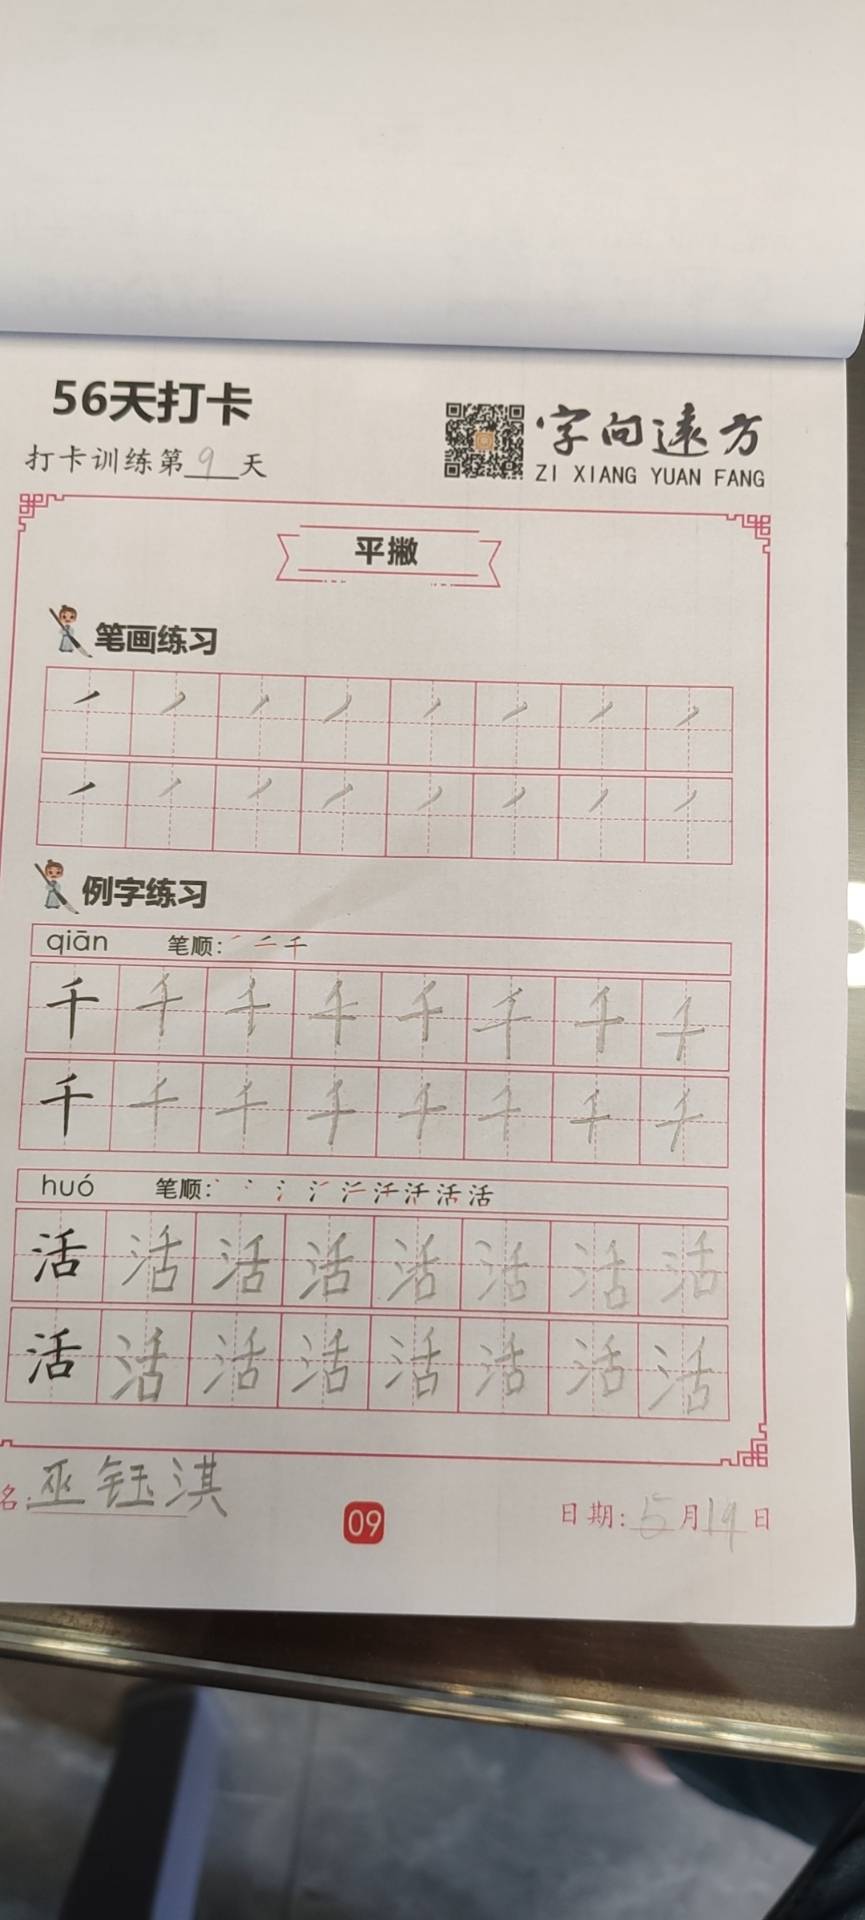 56天打卡
字向远方
打卡训练第9天
ZI XIANG YUAN FANG
平撇
笔画练习
例字练习
qiān 笔顺: ㇒ 二 千
千 千 千 千 千 千 千 千
千 千 千 千 千 千 千 千
huó 笔顺: 活
活 活 活 活 活 活 活 活
活 活 活 活 活 活 活 活
名: 巫钰淇
09
日期: 5月19日